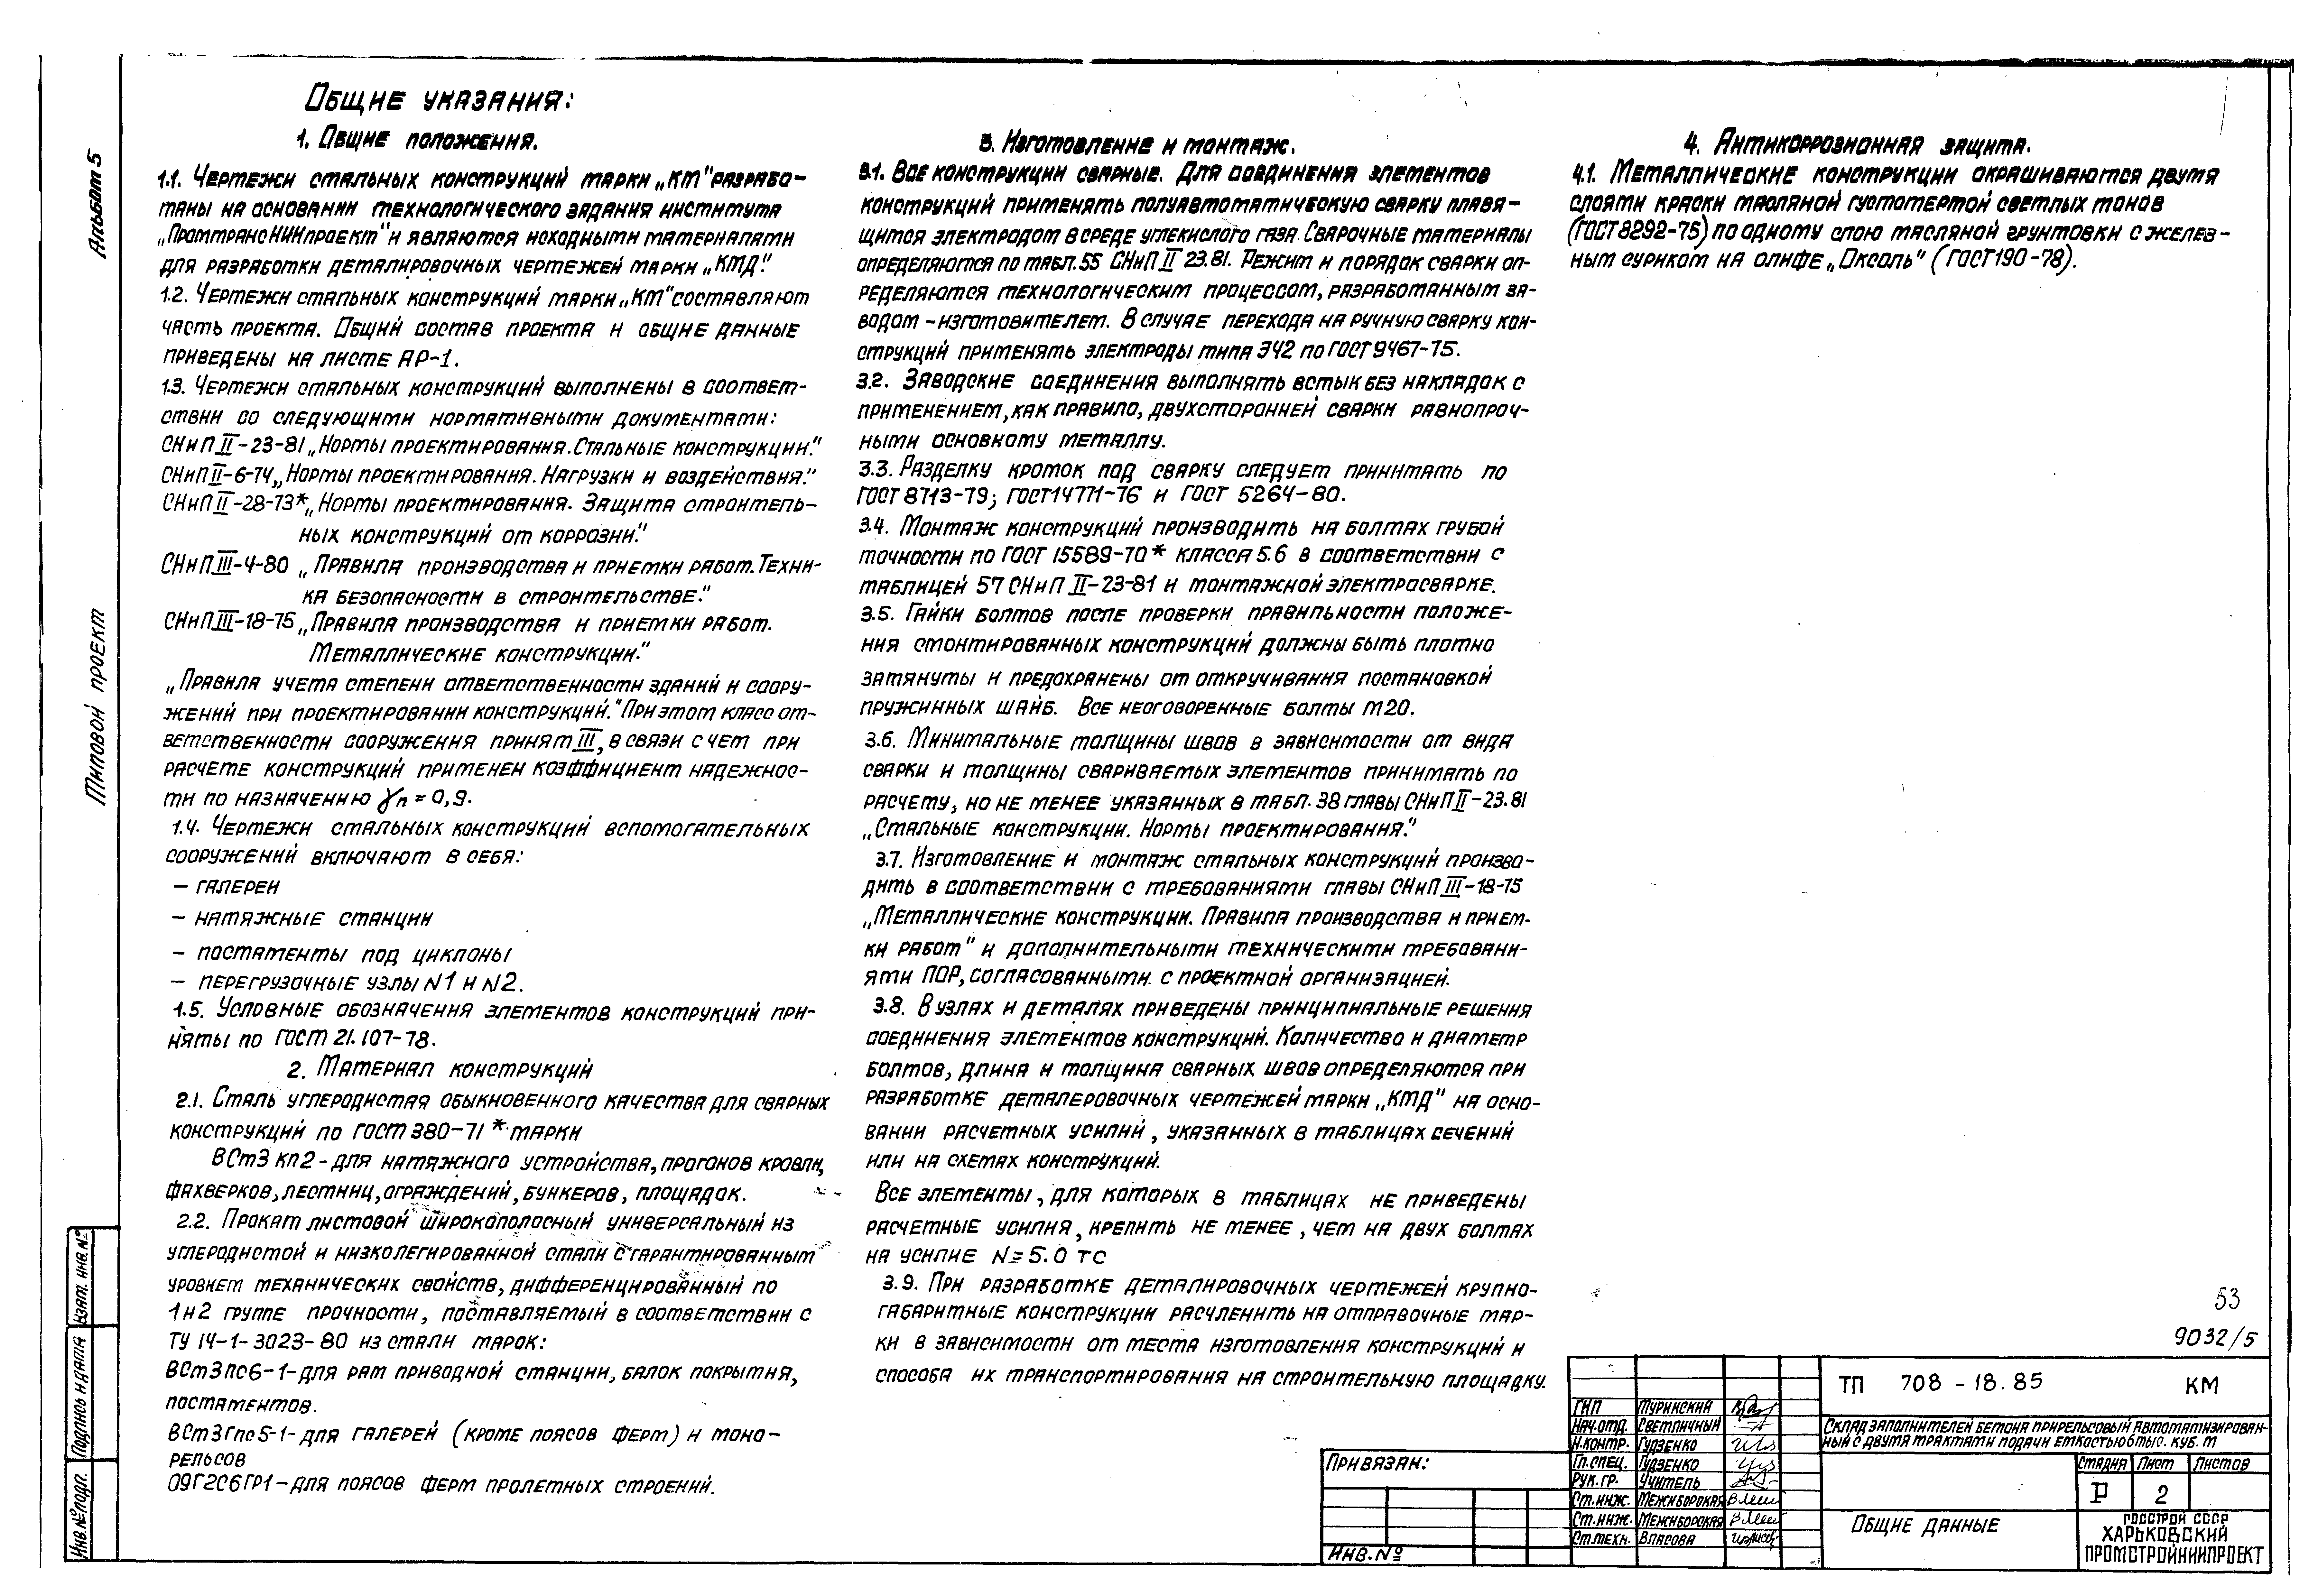 Альбом 5
Типовой проект
Общие указания:
1. Общие положения.
1.1. Чертежи стальных конструкций марки „КМ" разрабо-
таны на основании технологического задания института
„ПромтрансНИИпроект" и являются исходными материалами
для разработки деталировочных чертежей марки „КМД".
1.2. Чертежи стальных конструкций марки „КМ" составляют
часть проекта. Общий состав проекта и общие данные
приведены на листе АР-1.
1.3. Чертежи стальных конструкций выполнены в соответ-
ствии со следующими нормативными документами:
СНиП II-23-81 „Нормы проектирования. Стальные конструкции."
СНиП II-6-74 „Нормы проектирования. Нагрузки и воздействия."
СНиП II-28-73* „Нормы проектирования. Защита строитель-
ных конструкций от коррозии."
СНиП III-4-80 „Правила производства и приемки работ. Техни-
ка безопасности в строительстве."
СНиП III-18-75 „Правила производства и приемки работ.
Металлические конструкции."
„Правила учета степени ответственности зданий и соору-
жений при проектировании конструкций." При этом класс от-
ветственности сооружения принят III, в связи с чем при
расчете конструкций применен коэффициент надежнос-
ти по назначению γп = 0,9.
1.4. Чертежи стальных конструкций вспомогательных
сооружений включают в себя:
– галереи
– натяжные станции
– постаменты под циклоны
– перегрузочные узлы N1 и N2.
1.5. Условные обозначения элементов конструкций при-
няты по ГОСТ 21.107-78.
2. Материал конструкций
2.1. Сталь углеродистая обыкновенного качества для сварных
конструкций по ГОСТ 380-71* марки
ВСт3 кп2 - для натяжного устройства, прогонов кровли,
фахверков, лестниц, ограждений, бункеров, площадок.
2.2. Прокат листовой широкополосный универсальный из
углеродистой и низколегированной стали с гарантированным
уровнем механических свойств, дифференцированный по
1 и 2 группе прочности, поставляемый в соответствии с
ТУ 14-1-3023-80 из стали марок:
ВСт3пс6-1-для рам приводной станции, балок покрытия,
постаментов.
ВСт3Гпс5-1-для галерей (кроме поясов ферм) и моно-
рельсов
09Г2С6ГР1-для поясов ферм пролетных строений.
3. Изготовление и монтаж.
3.1. Все конструкции сварные. Для соединения элементов
конструкций применять полуавтоматическую сварку плавя-
щимся электродом в среде углекислого газа. Сварочные материалы
определяются по табл. 55 СНиП II 23.81. Режим и порядок сварки оп-
ределяются технологическим процессом, разработанным за-
водом - изготовителем. В случае перехода на ручную сварку кон-
струкций применять электроды типа Э42 по ГОСТ 9467-75.
3.2. Заводские соединения выполнять встык без накладок с
применением, как правило, двухсторонней сварки равнопроч-
ными основному металлу.
3.3. Разделку кромок под сварку следует принимать по
ГОСТ 8713-79; ГОСТ 14771-76 и ГОСТ 5264-80.
3.4. Монтаж конструкций производить на болтах грубой
точности по ГОСТ 15589-70* класса 5.6 в соответствии с
таблицей 57 СНиП II-23-81 и монтажной электросварке.
3.5. Гайки болтов после проверки правильности положе-
ния смонтированных конструкций должны быть плотно
затянуты и предохранены от откручивания постановкой
пружинных шайб. Все неоговоренные болты М20.
3.6. Минимальные толщины швов в зависимости от вида
сварки и толщины свариваемых элементов принимать по
расчету, но не менее указанных в табл. 38 главы СНиП II-23.81
„Стальные конструкции. Нормы проектирования."
3.7. Изготовление и монтаж стальных конструкций произво-
дить в соответствии с требованиями главы СНиП III-18-75
„Металлические конструкции. Правила производства и прием-
ки работ" и дополнительными техническими требовани-
ями ПОР, согласованными с проектной организацией.
3.8. В узлах и деталях приведены принципиальные решения
соединения элементов конструкций. Количество и диаметр
болтов, длина и толщина сварных швов определяются при
разработке деталеровочных чертежей марки „КМД" на осно-
вании расчетных усилий, указанных в таблицах сечений
или на схемах конструкций.
Все элементы, для которых в таблицах не приведены
расчетные усилия, крепить не менее, чем на двух болтах
на усилие N = 5.0 тс
3.9. При разработке деталировочных чертежей крупно-
габаритные конструкции расчленить на отправочные мар-
ки в зависимости от места изготовления конструкций и
способа их транспортирования на строительную площадку.
4. Антикоррозионная защита.
4.1. Металлические конструкции окрашиваются двумя
слоями краски масляной густотертой светлых тонов
(ГОСТ 8292-75) по одному слою масляной грунтовки с желез-
ным суриком на олифе „Оксоль" (ГОСТ 190-78).
53
9032/5
ТП 708-18.85 КМ
Склад заполнителей бетона прирельсовый автоматизирован-
ный с двумя трактами подачи емкостью 6 тыс. куб. м
Стадия Лист Листов
Р 2
Общие данные
Госстрой СССР
Харьковский
Промстройниипроект
ГИП Туринский
Нач. отд. Светличный
Н.контр. Гудзенко
Гл. спец. Гудзенко
Рук. гр. Учитель
Ст. инж. Межиборская
Ст. инж. Межиборская
Ст. техн. Власова
Привязан:
Инв. №
Взам. инв. №
Подпись и дата
Инв. № подл.